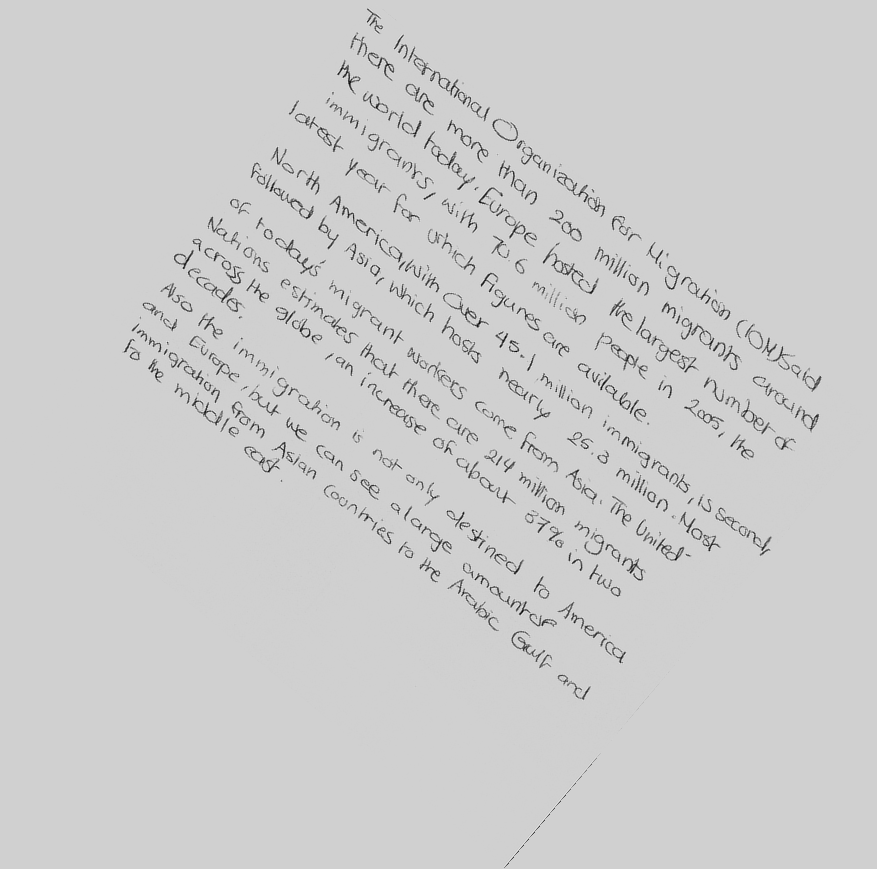 The International Organization for Migration (IOM) said
there are more than 200 million migrants around
the world today. Europe hosted the largest number of
immigrants, with 70.6 million people in 2005, the
latest year for which figures are available.
North America, with over 45.1 million immigrants, is second,
followed by Asia, which hosts nearly 25.3 million. Most
of today's migrant workers come from Asia. The United-
Nations estimates that there are 214 million migrants
across the globe, an increase of about 37% in two
decades.
Also the immigration is not only destined to America
and Europe, but we can see a large amount of
immigration from Asian Countries to the Arabic Gulf and
to the middle east.